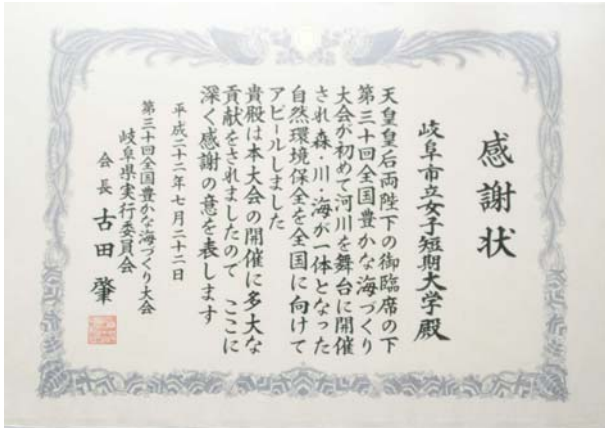 感謝状
岐阜市立女子短期大学殿
天皇皇后両陛下の御臨席の下
第三十回全国豊かな海づくり
大会が初めて河川を舞台に開催
され森・川・海が一体となった
自然環境保全を全国に向けて
アピールしました
貴殿は本大会の開催に多大な
貢献をされましたので ここに
深く感謝の意を表します
平成二十二年七月二十二日
第三十回全国豊かな海づくり大会
岐阜県実行委員会
会長 古田 肇